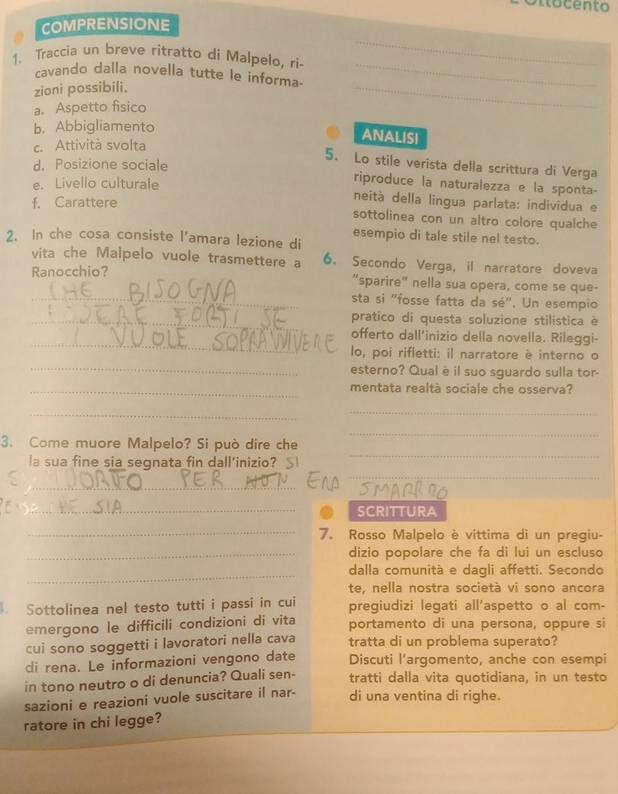 L'Ottocento
COMPRENSIONE
1. Traccia un breve ritratto di Malpelo, ri-
cavando dalla novella tutte le informa-
zioni possibili.
a. Aspetto fisico
b. Abbigliamento
c. Attività svolta
d. Posizione sociale
e. Livello culturale
f. Carattere
2. In che cosa consiste l'amara lezione di
vita che Malpelo vuole trasmettere a
Ranocchio?
CHE BISOGNA
ESSERE FORTI SE
SI VUOLE SOPRAVVIVERE
3. Come muore Malpelo? Si può dire che
la sua fine sia segnata fin dall'inizio? SI
PER NON ERA SMARRITO
CHE SIA
Sottolinea nel testo tutti i passi in cui
emergono le difficili condizioni di vita
cui sono soggetti i lavoratori nella cava
di rena. Le informazioni vengono date
in tono neutro o di denuncia? Quali sen-
sazioni e reazioni vuole suscitare il nar-
ratore in chi legge?
ANALISI
5. Lo stile verista della scrittura di Verga
riproduce la naturalezza e la sponta-
neità della lingua parlata: individua e
sottolinea con un altro colore qualche
esempio di tale stile nel testo.
6. Secondo Verga, il narratore doveva
"sparire" nella sua opera, come se que-
sta si "fosse fatta da sé". Un esempio
pratico di questa soluzione stilistica è
offerto dall'inizio della novella. Rileggi-
lo, poi rifletti: il narratore è interno o
esterno? Qual è il suo sguardo sulla tor-
mentata realtà sociale che osserva?
SCRITTURA
7. Rosso Malpelo è vittima di un pregiu-
dizio popolare che fa di lui un escluso
dalla comunità e dagli affetti. Secondo
te, nella nostra società vi sono ancora
pregiudizi legati all'aspetto o al com-
portamento di una persona, oppure si
tratta di un problema superato?
Discuti l'argomento, anche con esempi
tratti dalla vita quotidiana, in un testo
di una ventina di righe.